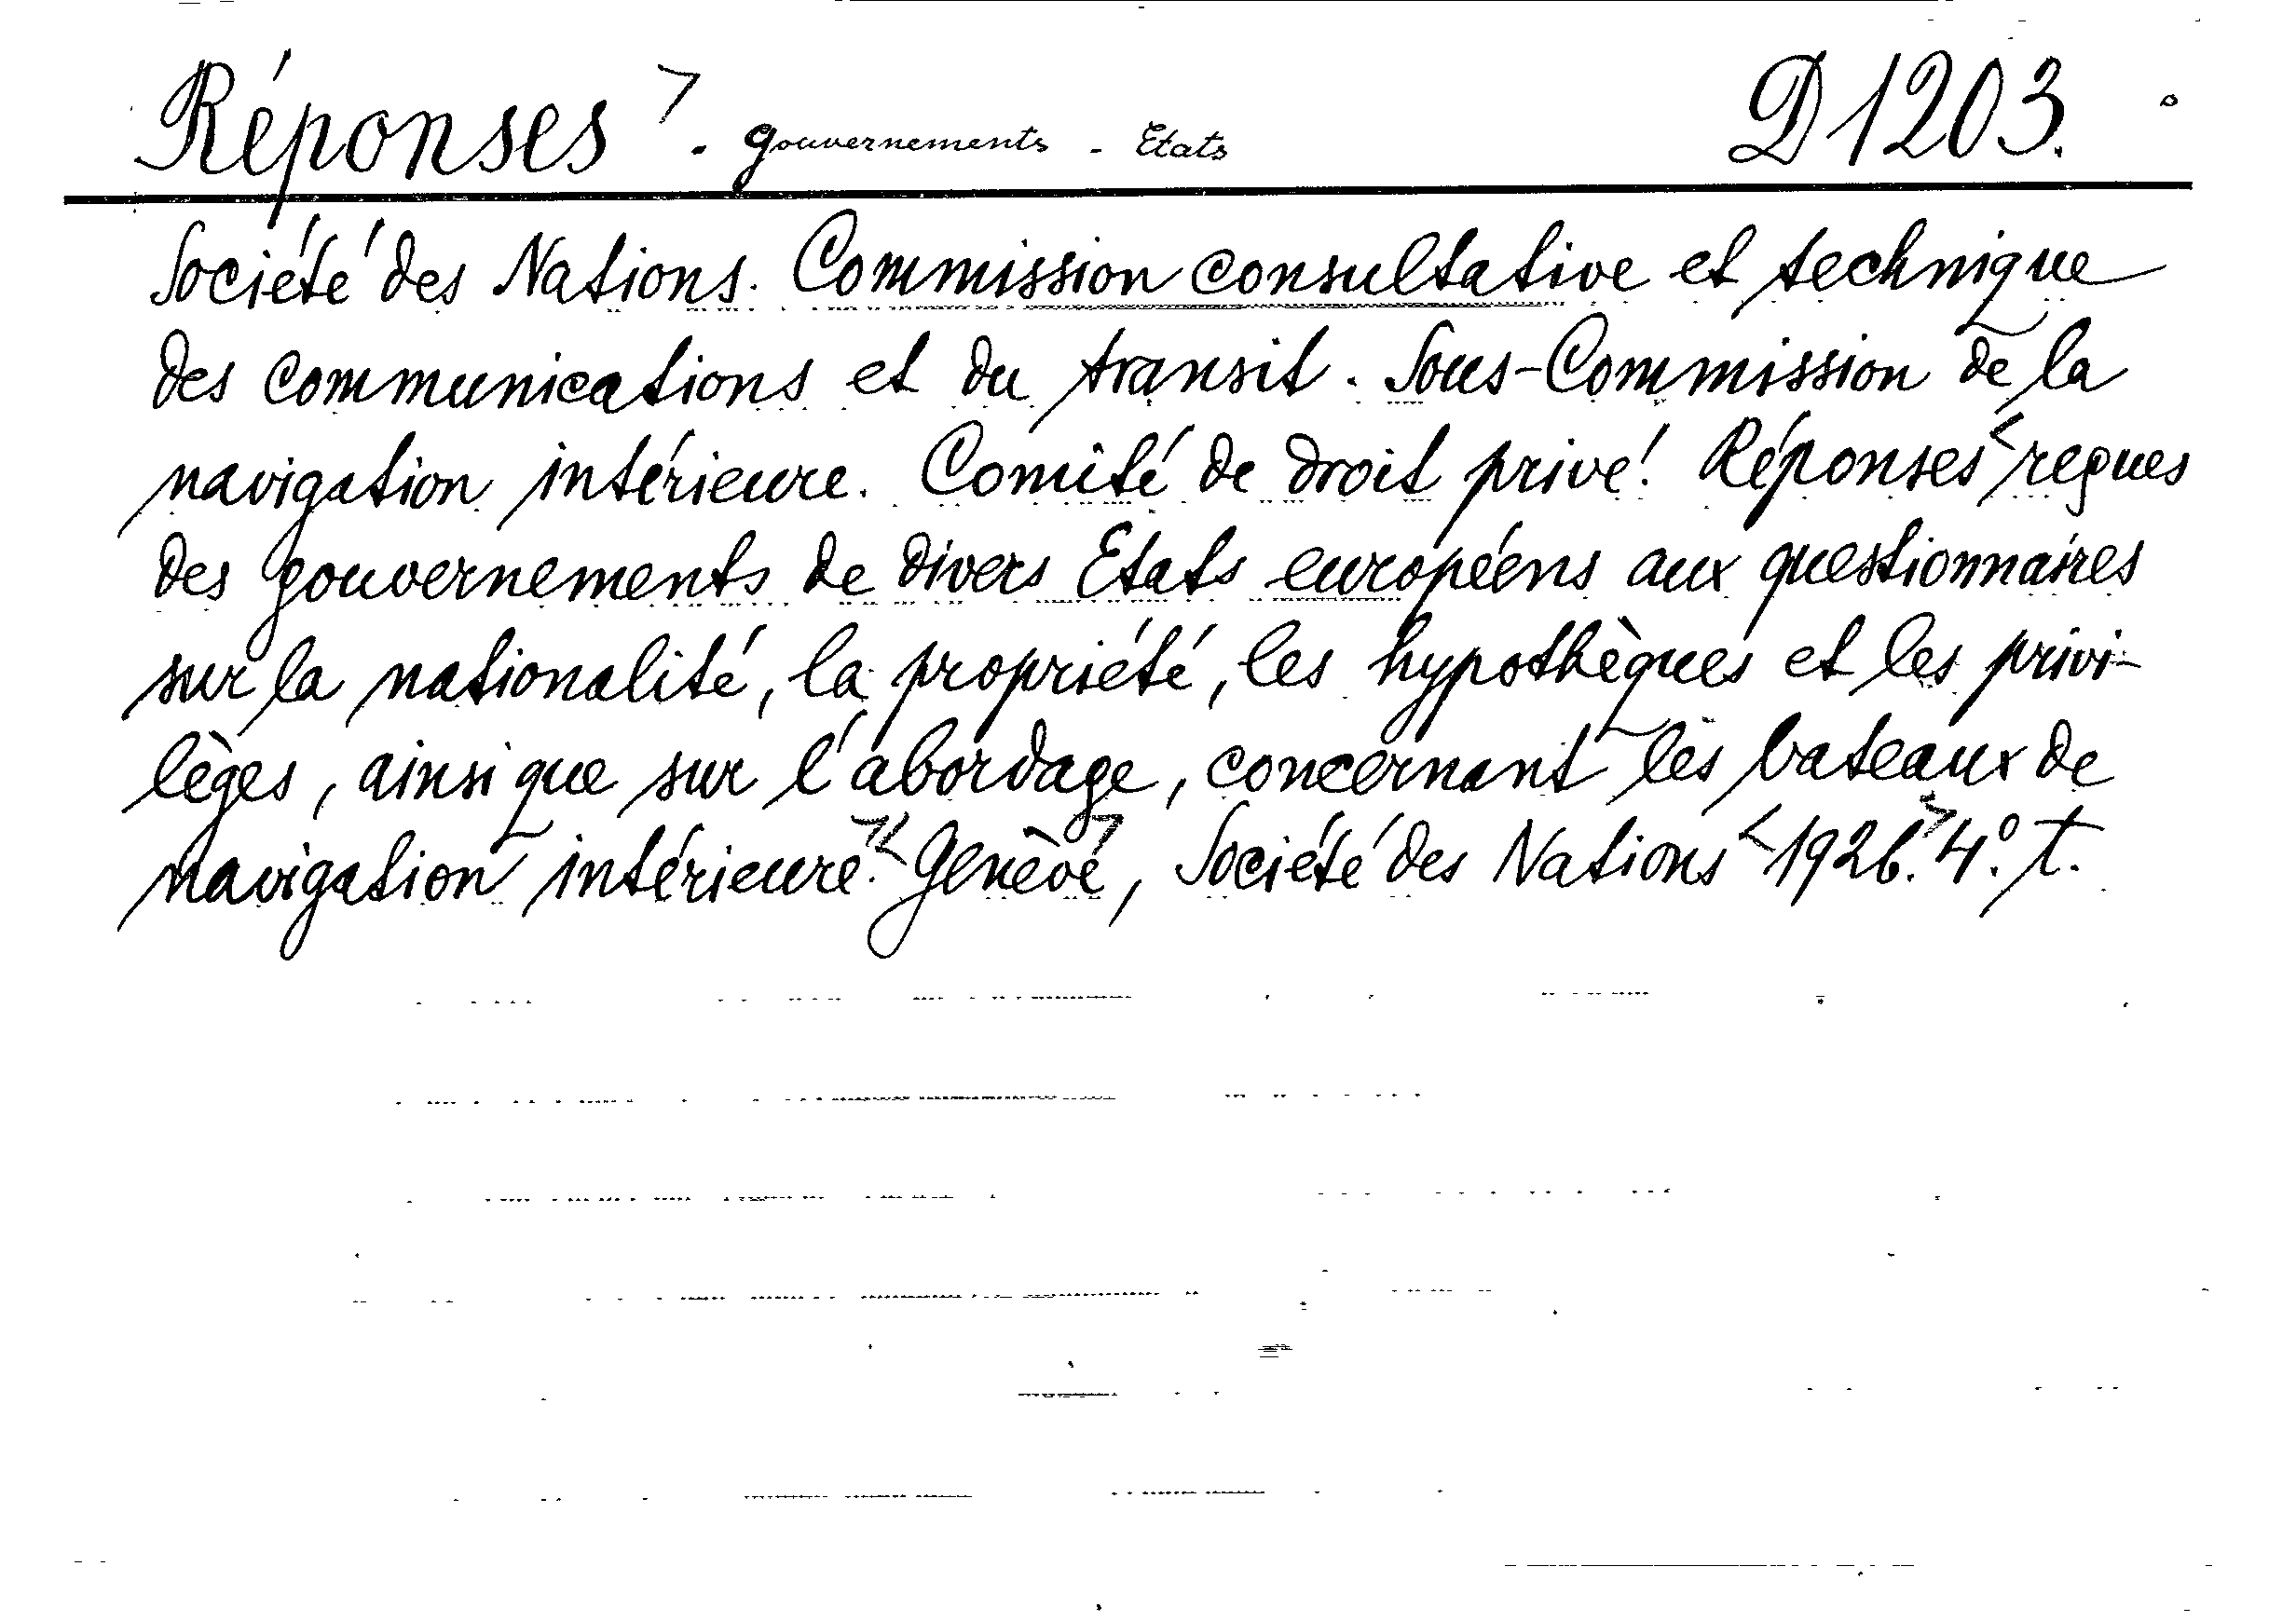 Réponses . gouvernements - Etats D 1203.
Société des Nations. Commission consultative et technique
des communications et du transit. Sous-Commission de la
navigation intérieure. Comité de droit privé. Réponses reçues
des gouvernements de divers Etats européens aux questionnaires
sur la nationalité, la propriété, les hypothèques et les privi-
lèges, ainsi que sur l'abordage, concernant les bateaux de
navigation intérieure. Genève, Société des Nations 1926. 4°. t.